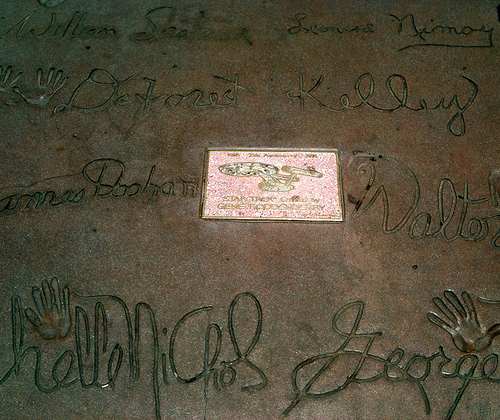 William Shatner Leonard Nimoy
DeForest Kelley
1966 25th Anniversary 1991
STAR TREK® Created by
GENE RODDENBERRY
ames Doohan Walter
helle Nichols George